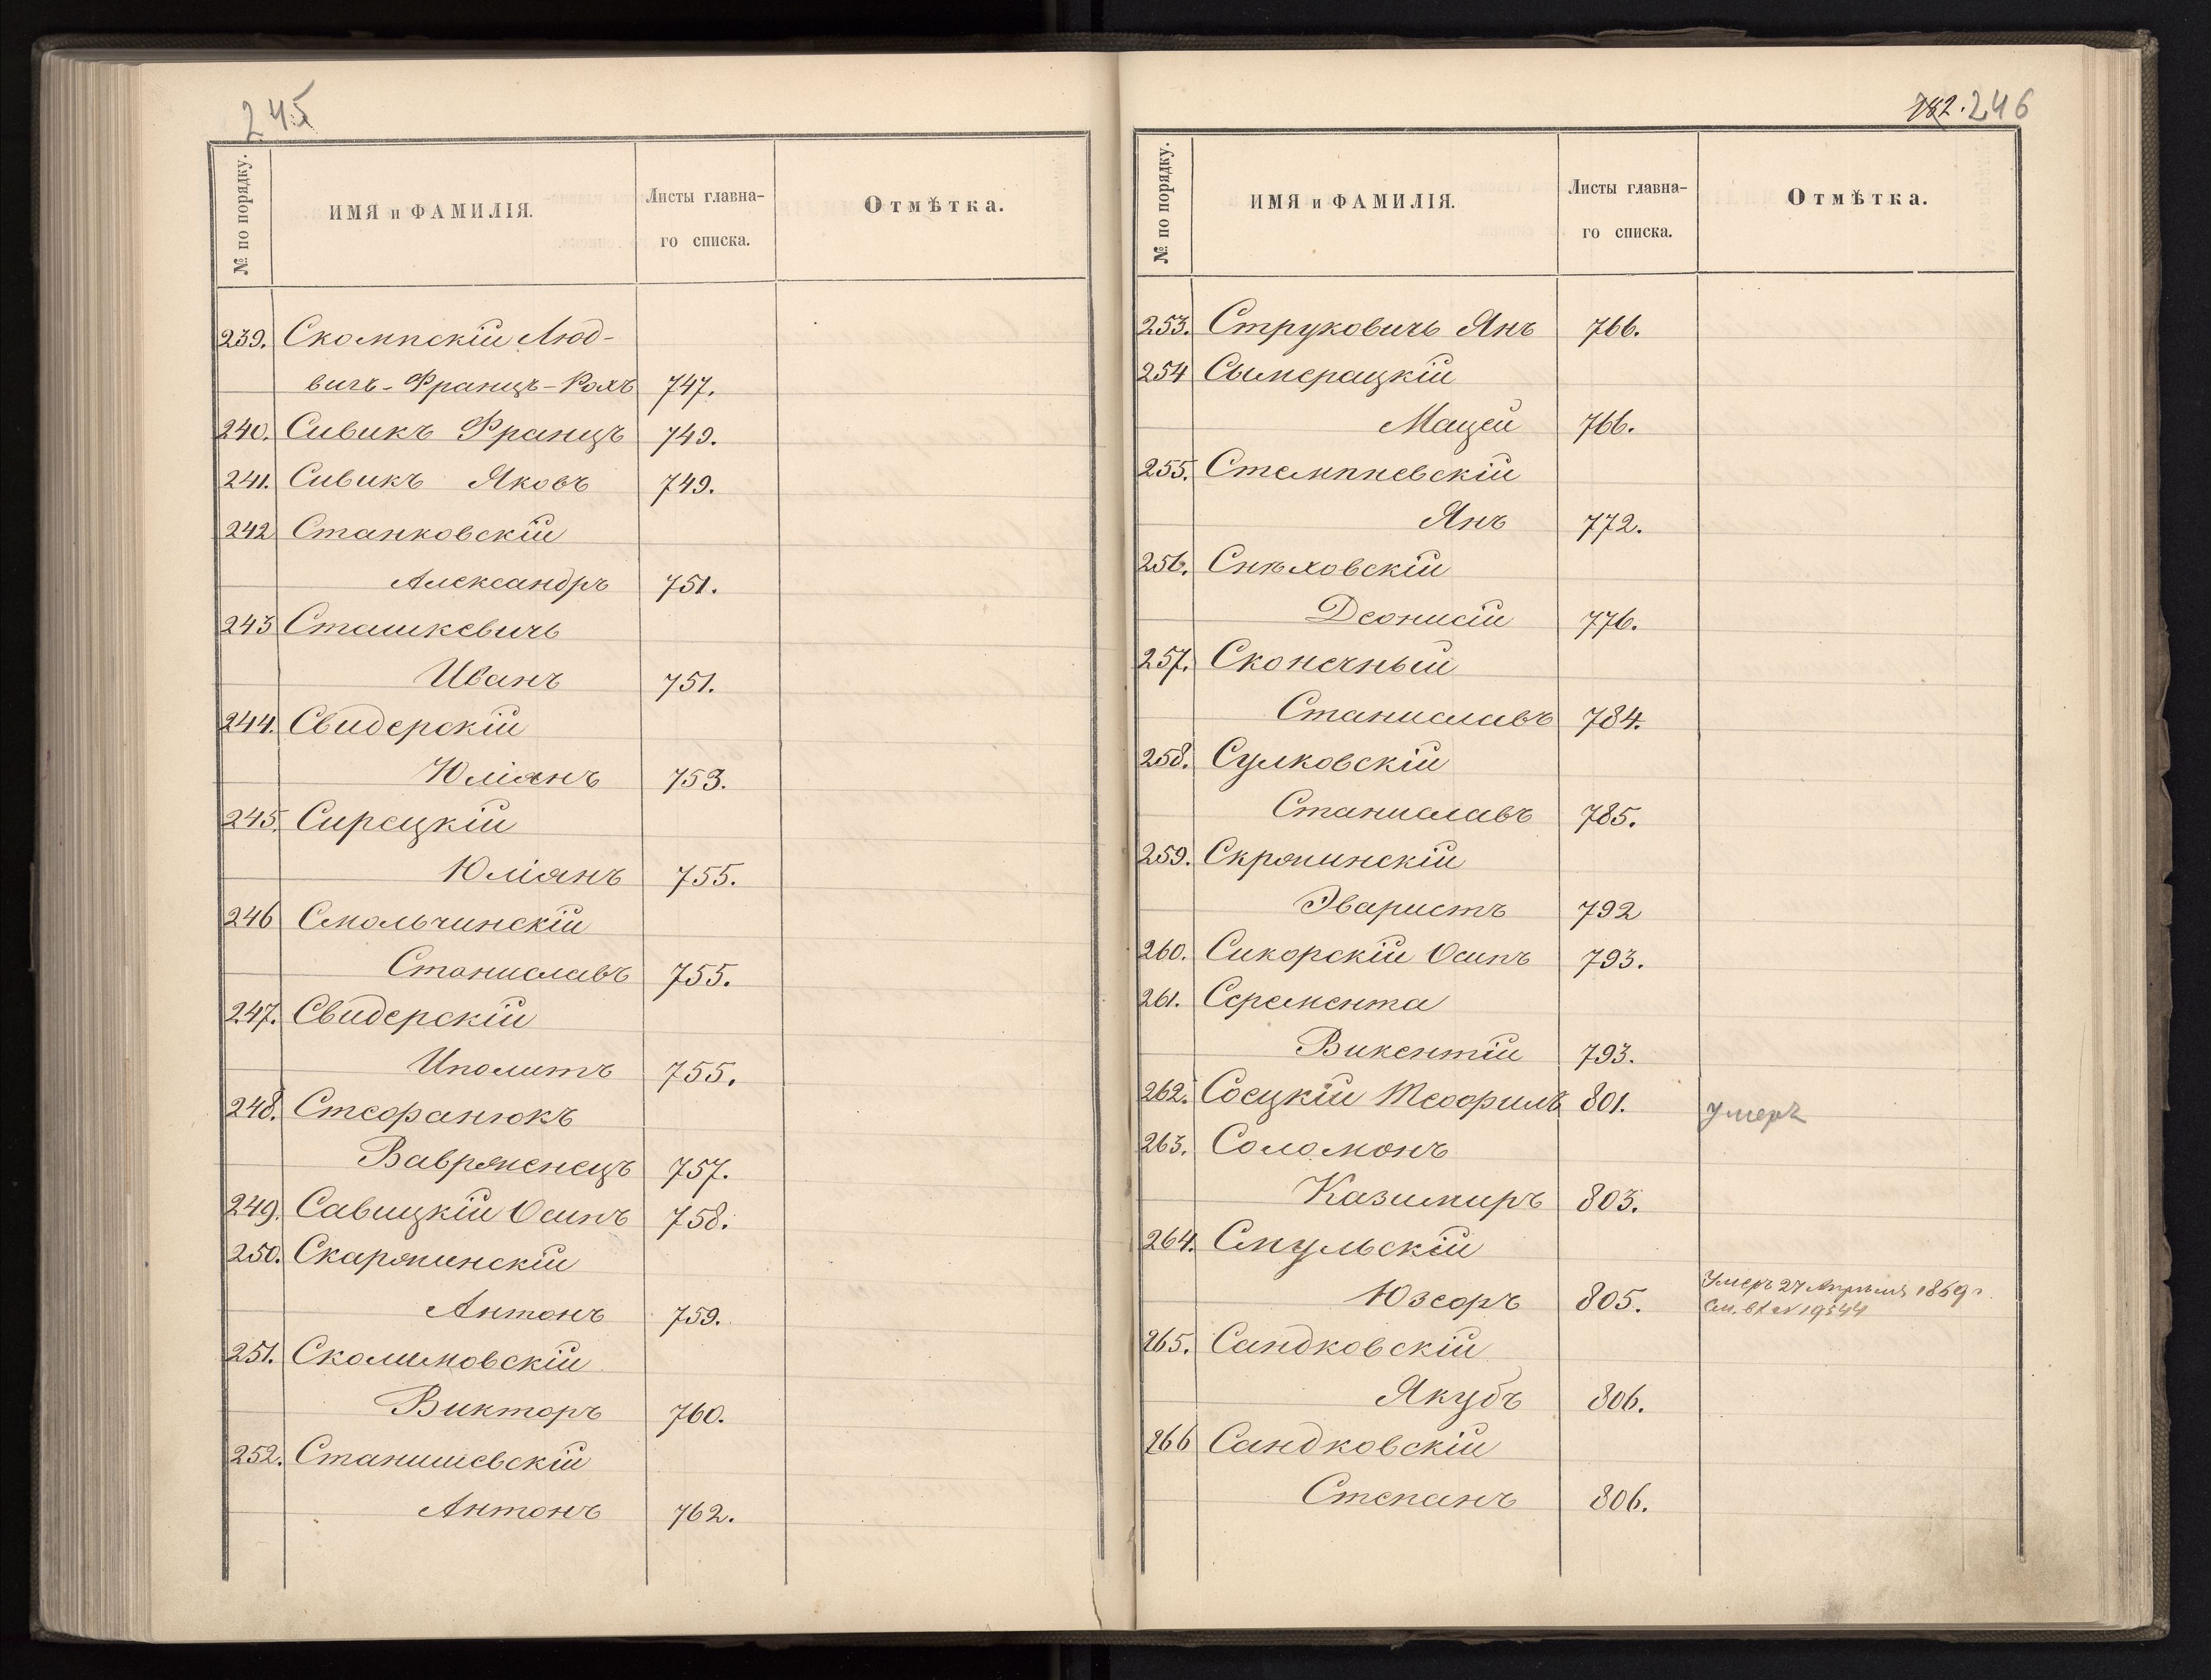 245
№ по порядку. ИМЯ и ФАМИЛІЯ. Листы главна-го списка. Отмѣтка.
239. Скомпскій Люд-
вигъ-Францъ-Рохъ 747.
240. Сивикъ Францъ 749.
241. Сивикъ Яковъ 749.
242 Станковскій
Александръ 751.
243 Сташкевичъ
Иванъ 751.
244. Свидерскій
Юліянъ 753.
245. Сирецкій
Юліянъ 755.
246 Смольчинскій
Станиславъ 755.
247. Свидерскій
Иполитъ 755.
248. Стефанюкъ
Ваврженецъ 757.
249. Савицкій Осипъ 758.
250. Скаржинскій
Антонъ 759.
251. Сколимовскій
Викторъ 760.
252. Станишевскій
Антонъ 762.
182. 246
№ по порядку. ИМЯ и ФАМИЛІЯ. Листы главна-го списка. Отмѣтка.
253. Струковичъ Янъ 766.
254 Смерацкій
Мацей 766.
255. Стемпневскій
Янъ 772.
256. Снѣховскій
Деонисій 776.
257. Сконечный
Станиславъ 784.
258. Сулковскій
Станиславъ 785.
259. Скржинскій
Эваристъ 792
260. Сикорскій Осипъ 793.
261. Серемента
Викентій 793.
262. Соецкій Теофилъ 801. умеръ
263. Соломонъ
Казимиръ 803.
264. Смульскій
Юзефъ 805. Умеръ 27 Апрѣля 1869 г.
См. вх № 19544
265. Сандковскій
Якубъ 806.
266 Сандковскій
Степанъ 806.